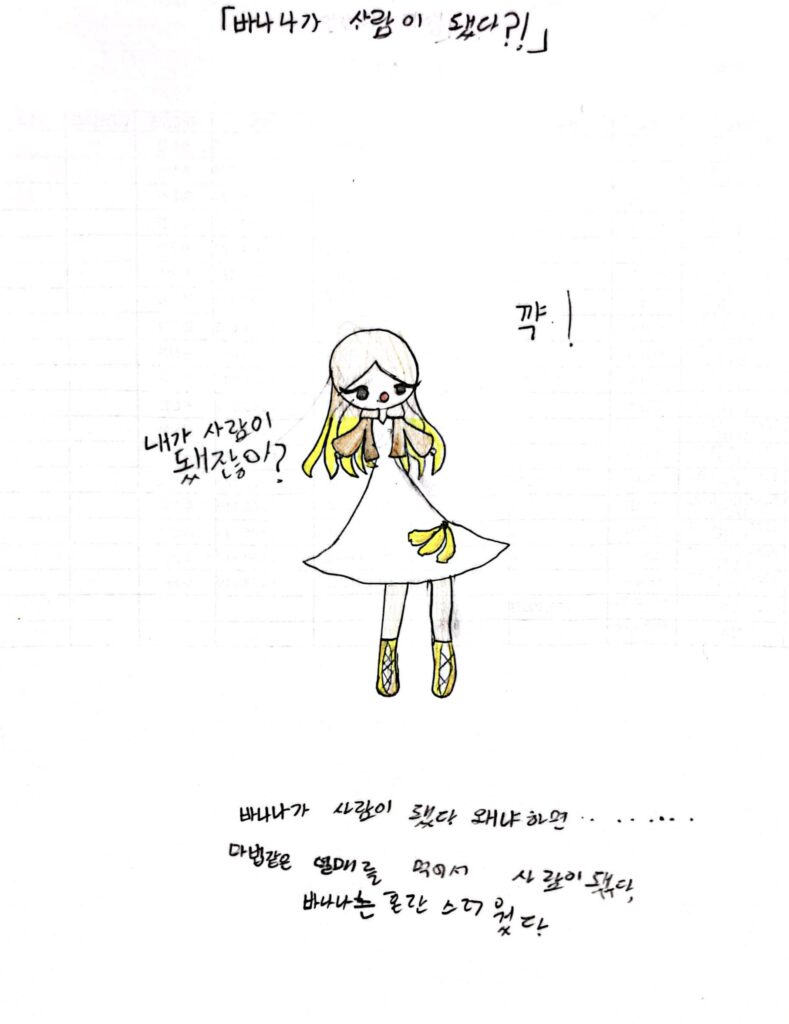 「바나나가 사람이 됐다?!」
꺅!
내가 사람이
됐잖아?
바나나가 사람이 됐다 왜냐하면‥ ‥‥‥
마법같은 열매를 먹어서 사람이 됐다,
바나나는 혼란 스러 웠다